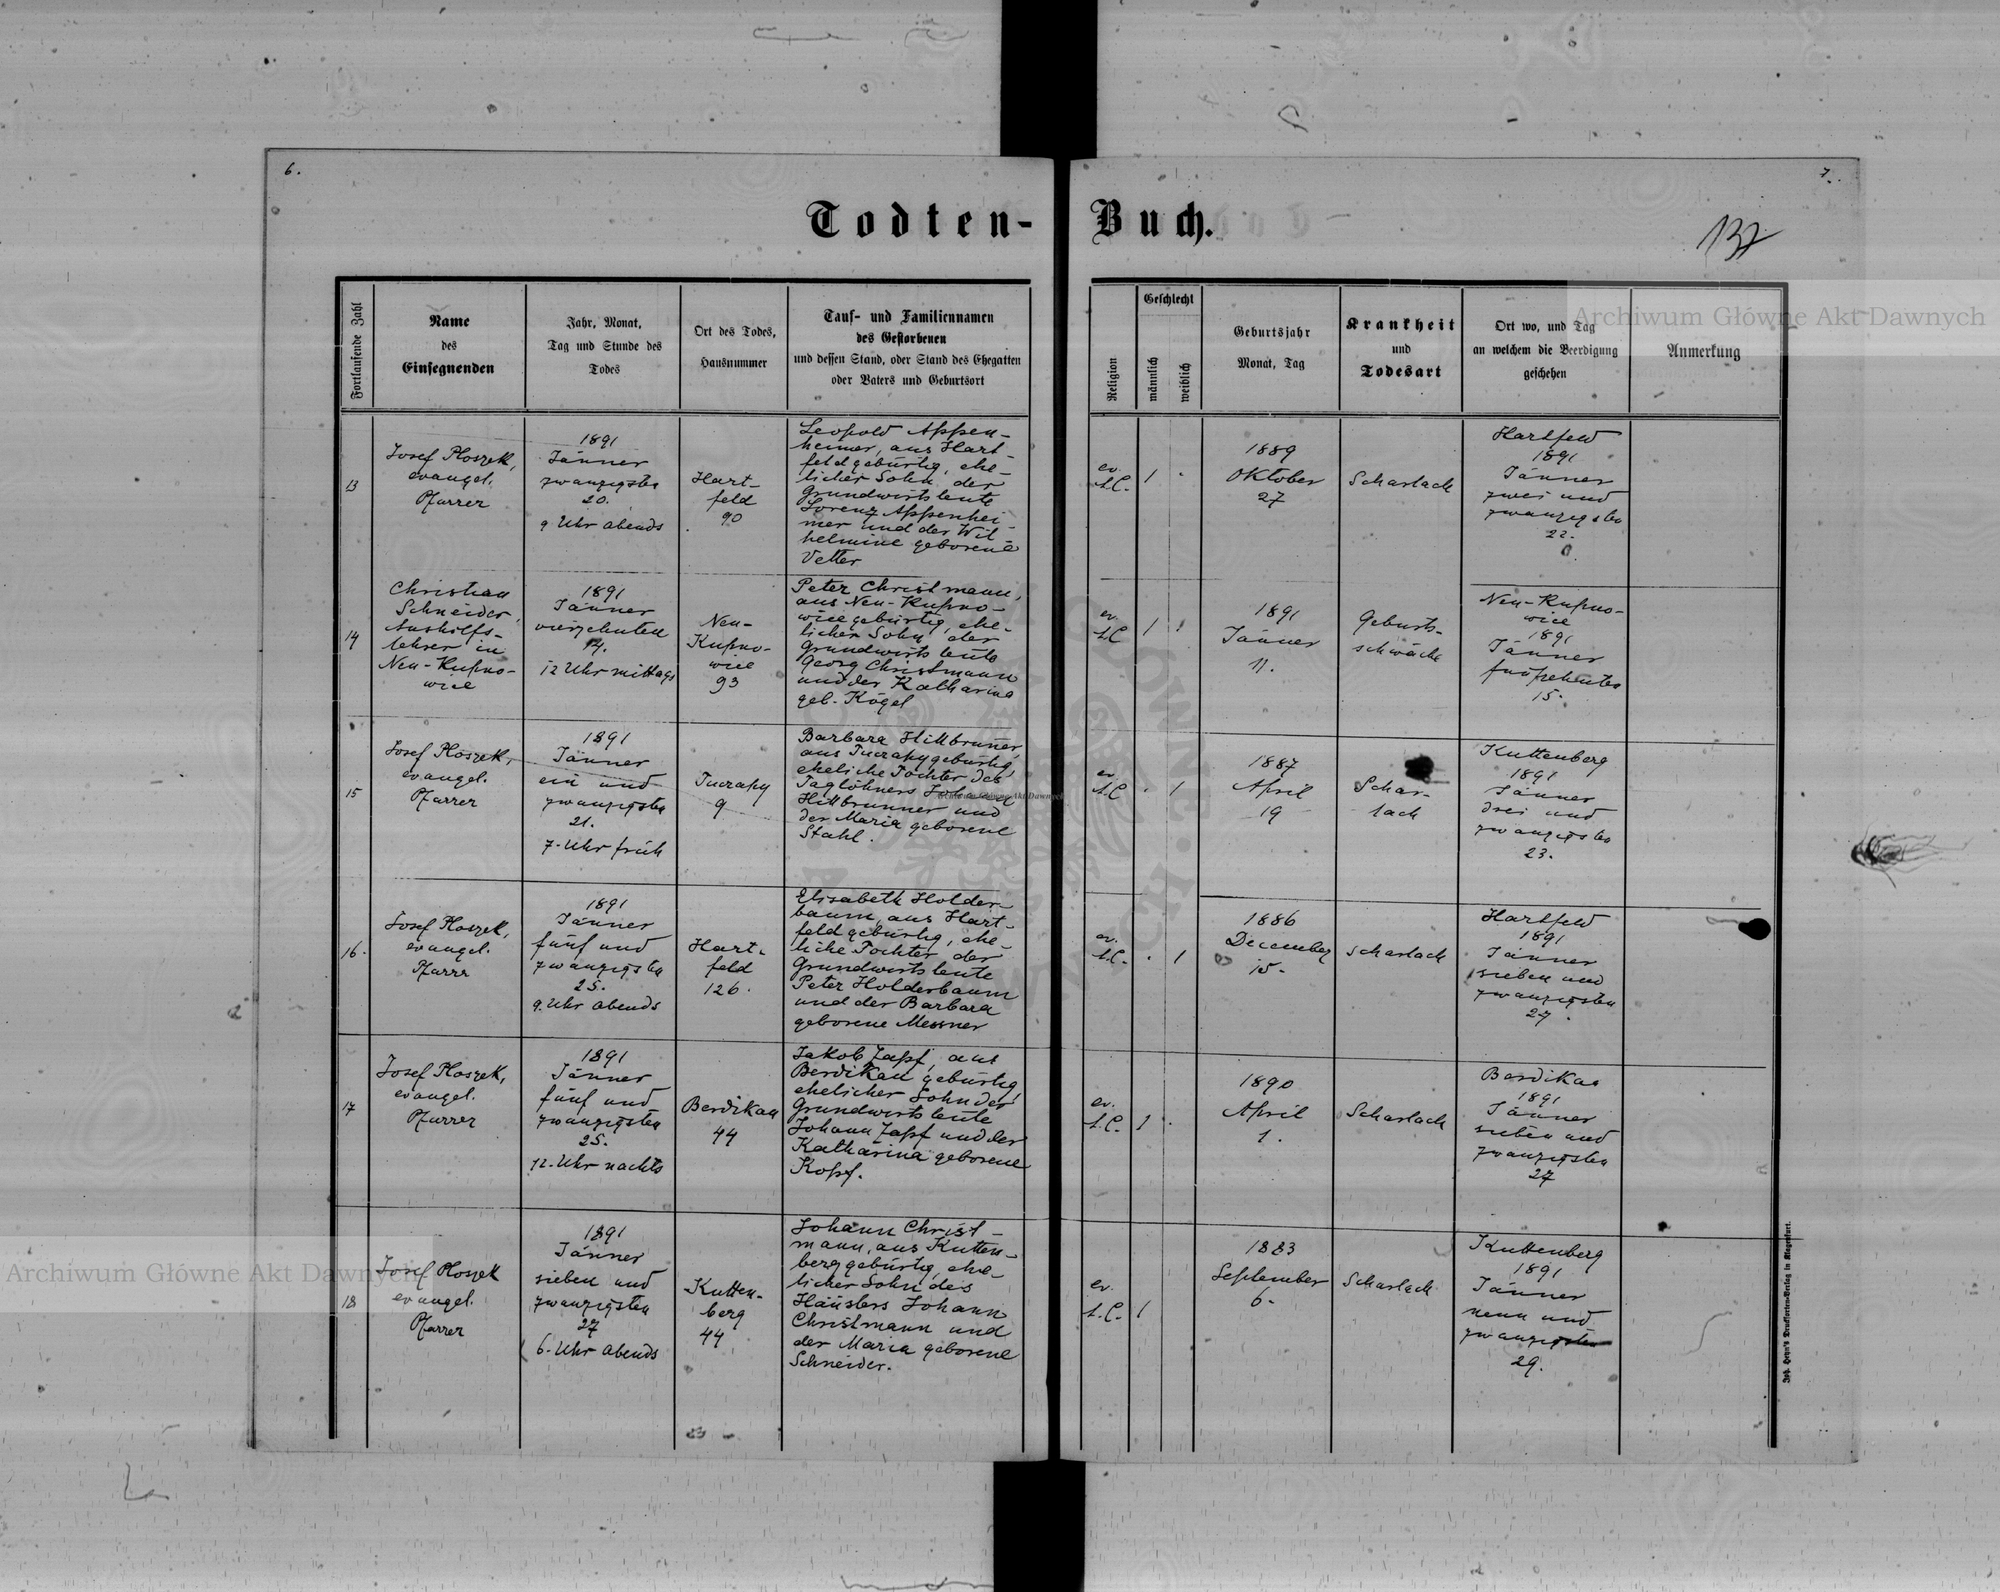 6.
7.
Todten-
Buch.
137
Fortlaufende Zahl
Name
des
Einsegnenden
Jahr, Monat,
Tag und Stunde des
Todes
Ort des Todes,
Hausnummer
Tauf- und Familiennamen
des Gestorbenen
und dessen Stand, oder Stand des Ehegatten
oder Vaters und Geburtsort
Religion
Geschlecht
männlich
weiblich
Geburtsjahr
Monat, Tag
Krankheit
und
Todesart
Ort wo, und Tag
an welchem die Beerdigung
geschehen
Anmerkung
13
Josef Ploszek,
evangel.
Pfarrer
1891
Jänner
zwanzigsten
20.
9 Uhr abends
Hart-
feld
90
Leopold Appen-
heimer, aus Hart-
feld gebürtig, ehe-
licher Sohn der
Grundwirtsleute
Lorenz Appenhei-
mer und der Wil-
helmine geborene
Vetter
ev.
A.C.
1
1889
Oktober
27
Scharlach
Hartfeld
1891
Jänner
zwei und
zwanzigsten
22.
14
Christian
Schneider,
Aushilfs-
lehrer in
Neu-Kupno-
wice
1891
Jänner
vierzehnten
14.
12 Uhr mittags
Neu-
Kupno-
wice
93
Peter Christmann,
aus Neu-Kupno-
wice gebürtig, ehe-
licher Sohn der
Grundwirtsleute
Georg Christmann
und der Katharina
geb. Kögel
ev.
A.C.
1
1891
Jänner
11.
Geburts-
schwäche
Neu-Kupno-
wice
1891
Jänner
fünfzehnten
15.
15
Josef Ploszek,
evangel.
Pfarrer
1891
Jänner
ein und
zwanzigsten
21.
7. Uhr früh
Tucrapy
9
Barbara Hillbrunner,
aus Tucrapy gebürtig,
eheliche Tochter des
Taglöhners Johann
Hillbrunner und
der Maria geborene
Stahl.
ev.
A.C.
1
1887
April
19
Schar-
lach
Kuttenberg
1891
Jänner
drei und
zwanzigsten
23.
16.
Josef Ploszek,
evangel.
Pfarrr
1891
Jänner
fünf und
zwanzigsten
25.
9. Uhr abends
Hart-
feld
126.
Elisabeth Holder-
baum, aus Hart-
feld gebürtig, ehe-
liche Tochter der
Grundwirtsleute
Peter Holderbaum
und der Barbara
geborene Messner
ev.
A.C.
1
1886
December
15.
Scharlach
Hartfeld
1891
Jänner
sieben und
zwanzigsten
27.
17
Josef Ploszek,
evangel.
Pfarrer
1891
Jänner
fünf und
zwanzigsten
25.
12. Uhr nachts
Berdikau
44
Jakob Zapf, aus
Berdikau gebürtig,
ehelicher Sohn der
Grundwirtsleute
Johann Zapf und der
Katharina geborene
Kopf.
ev.
A.C.
1
1890
April
1.
Scharlach
Berdikau
1891
Jänner
sieben und
zwanzigsten
27
18
Josef Ploszek
evangel.
Pfarrer
1891
Jänner
sieben und
zwanzigsten
27
6. Uhr abends
Kutten-
berg
44
Johann Christ-
mann, aus Kutten-
berg gebürtig, ehe-
licher Sohn des
Häuslers Johann
Christmann und
der Maria geborene
Schneider.
ev.
A.C.
1
1883
September
6.
Scharlach
Kuttenberg
1891
Jänner
neun und
zwanzigsten
29.
Joh. Heyn's Drucksorten-Verlag in Klagenfurt.
Archiwum Główne Akt Dawnych
Archiwum Główne Akt Dawnych